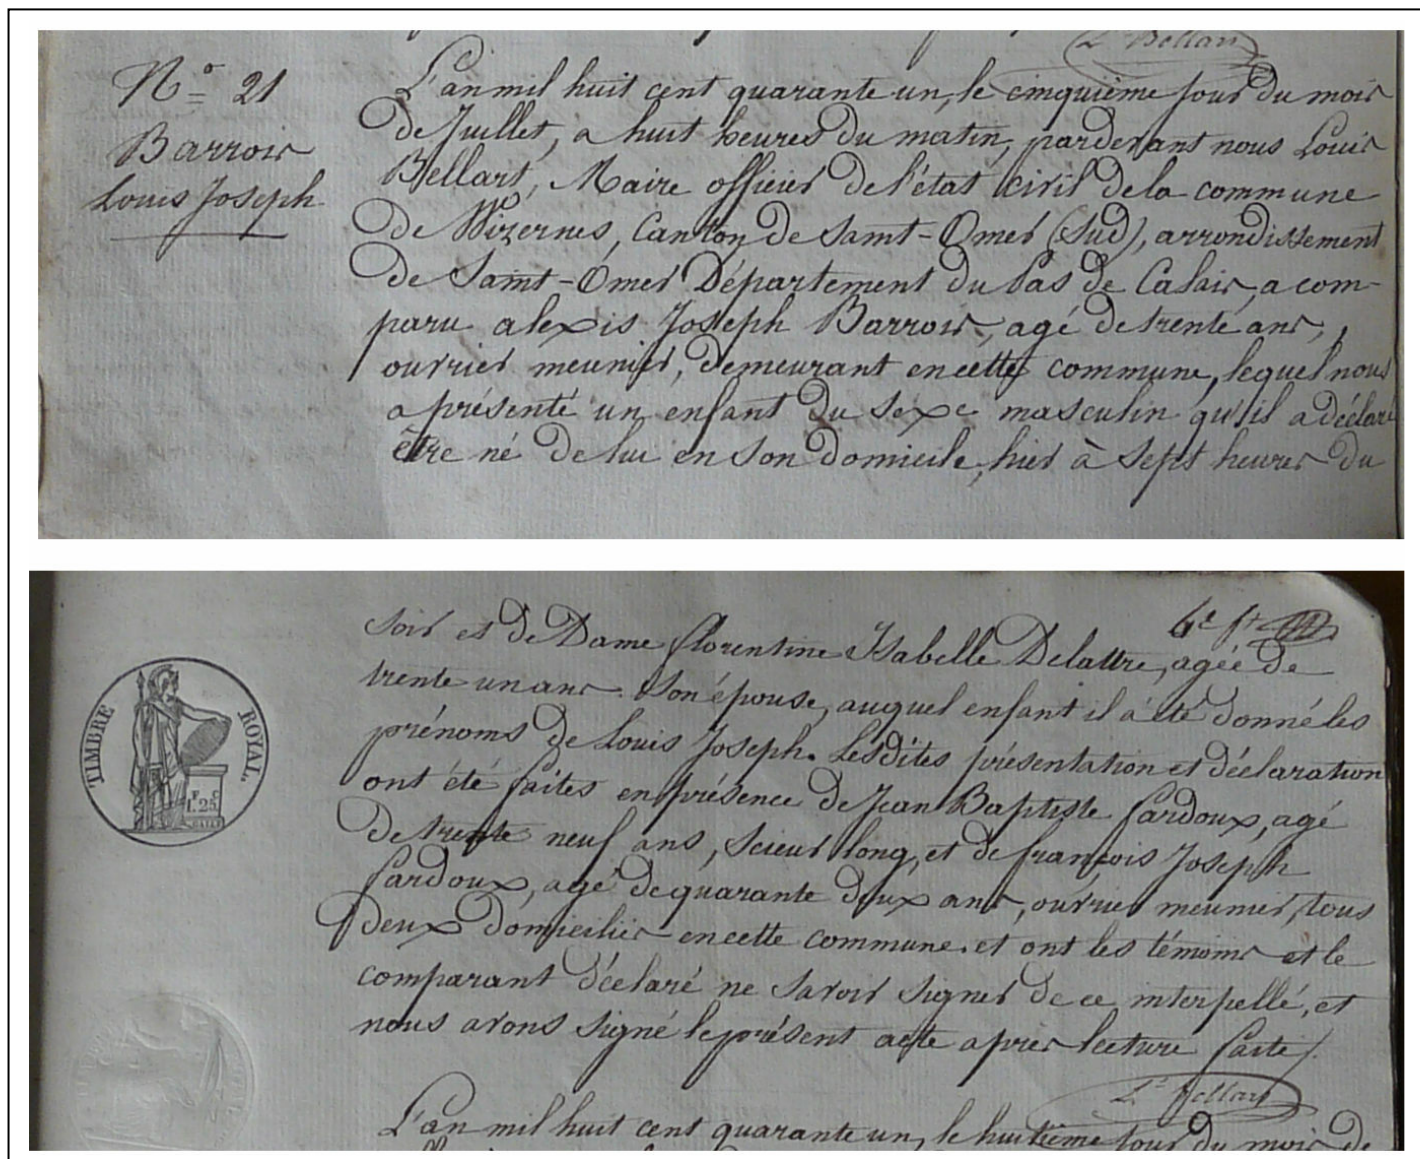 Lˢ Bellart
Nº 21
Barrois
Louis Joseph
L'an mil huit cent quarante un, le cinquième jour du mois
de Juillet, a huit heures du matin, pardevant nous Louis
Bellart, Maire officier de l'état civil de la commune
de Wizernes, Canton de Saint-Omer (Sud), arrondissement
de Saint-Omer Département du Pas de Calais, a com-
paru alexis Joseph Barrois, agé de trente ans,
ouvrier meunier, demeurant en cette commune, lequel nous
a présenté un enfant du sexe masculin qu'il a déclaré
être né de lui en son domicile, hier à sept heures du
soir et de Dame florentine Isabelle Delattre, agée de
trente un ans. Son épouse, auquel enfant il a été donné les
prénoms de Louis Joseph. Lesdites présentation et déclaration
ont été faites en présence de Jean Baptiste fardoux, agé
de trente neuf ans, scieur long, et de françois Joseph
fardoux, agé de quarante deux ans, ouvrier meunier, tous
deux domiciliés en cette commune. et ont les témoins et le
comparant déclaré ne savoir signer de ce interpellé, et
nous avons signé le présent acte apres lecture faite /.
Lˢ Bellart
L'an mil huit cent quarante un, le huitième jour du mois de
TIMBRE ROYAL.
1 F 25 C